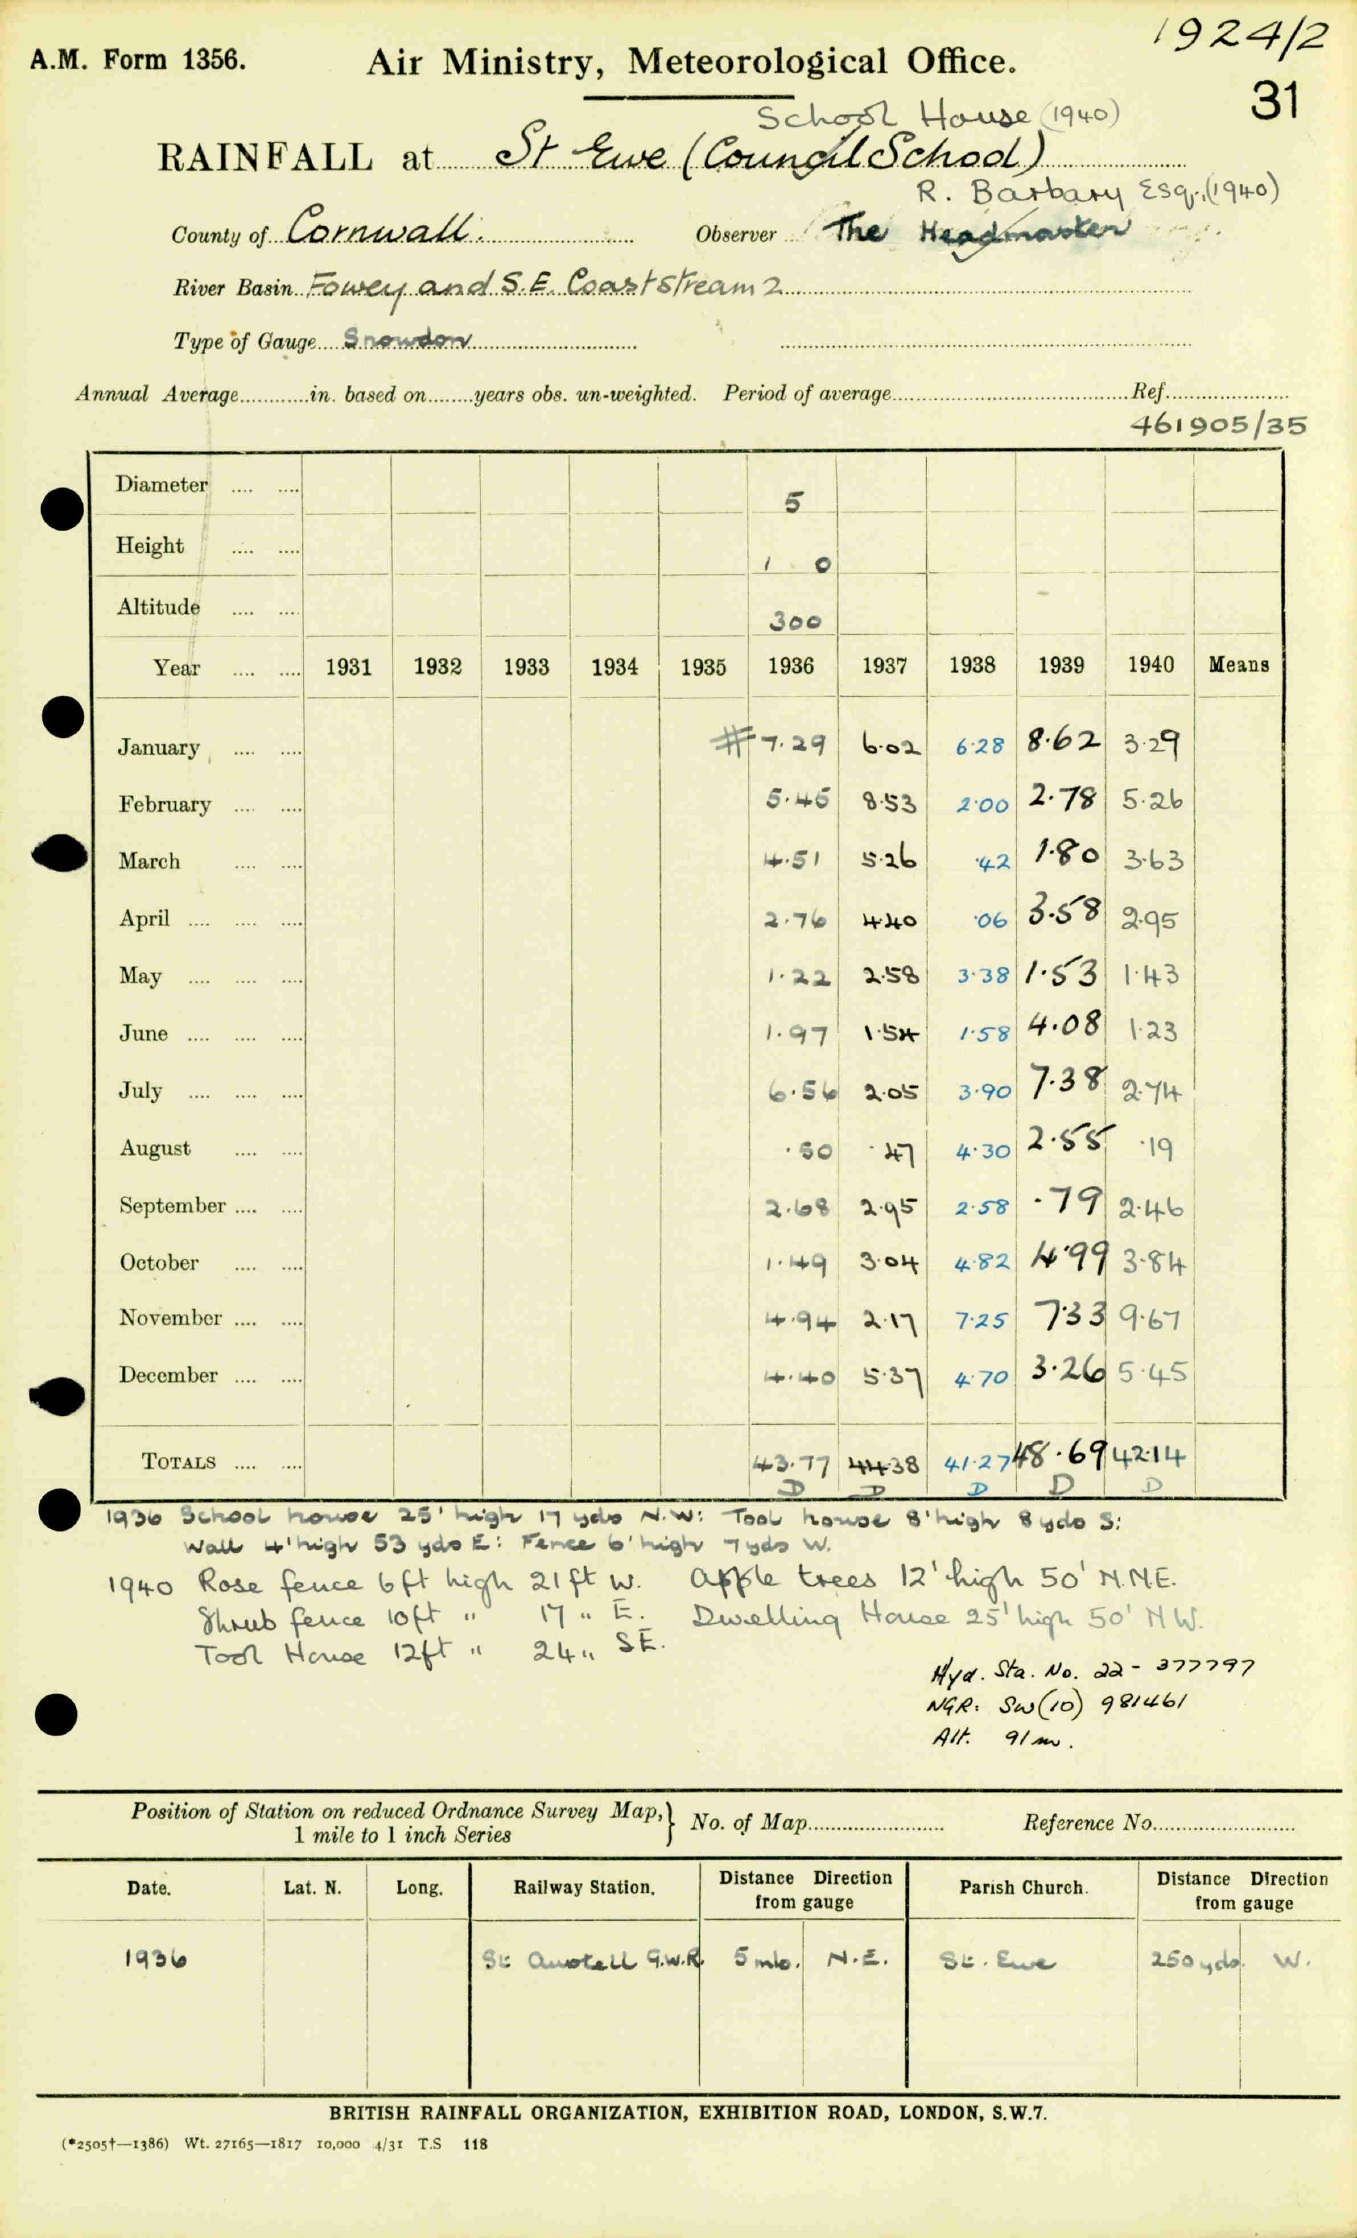 1924/2
A.M. Form 1356. Air Ministry, Meteorological Office.
31
School House (1940)
RAINFALL at St Ewe (Council School)
R. Barbary Esq., (1940)
County of Cornwall. Observer The Headmaster
River Basin Fowey and S.E. Coast Stream 2
Type of Gauge Snowdon
Annual Average............in. based on........years obs. un-weighted. Period of average........................................Ref.....................
461905/35
Diameter .... .... 5
Height .... .... 1 0
Altitude .... .... 300
Year .... .... 1931 1932 1933 1934 1935 1936 1937 1938 1939 1940 Means
January .... .... # 7.29 6.02 6.28 8.62 3.29
February .... .... 5.45 8.53 2.00 2.78 5.26
March .... .... 4.51 5.26 .42 1.80 3.63
April .... .... .... 2.76 4.40 .06 3.58 2.95
May .... .... .... 1.22 2.58 3.38 1.53 1.43
June .... .... .... 1.97 1.54 1.58 4.08 1.23
July .... .... .... 6.56 2.05 3.90 7.38 2.74
August .... .... .50 .47 4.30 2.55 .19
September .... .... 2.68 2.95 2.58 .79 2.46
October .... .... 1.49 3.04 4.82 4.99 3.84
November .... .... 4.94 2.17 7.25 7.33 9.67
December .... .... 4.40 5.37 4.70 3.26 5.45
TOTALS .... .... 43.77 44.38 41.27 48.69 42.14
D D D D D
1936 School house 25' high 17 yds N.W: Tool house 8' high 8 yds S:
Wall 4' high 53 yds E: Fence 6' high 7 yds W.
1940 Rose fence 6ft high 21ft W. Apple trees 12' high 50' N.N.E.
Shrub fence 10ft " 17 " E. Dwelling House 25' high 50' N W.
Tool House 12ft " 24 " SE.
Hyd. Sta. No. 22 - 377797
NGR: SW (10) 981461
Alt. 91 m.
Position of Station on reduced Ordnance Survey Map,} No. of Map........................ Reference No.........................
1 mile to 1 inch Series
Date. Lat. N. Long. Railway Station. Distance Direction from gauge Parish Church. Distance Direction from gauge
1936 St Austell G.W.R. 5 mls. N.E. St. Ewe 250 yds. W.
BRITISH RAINFALL ORGANIZATION, EXHIBITION ROAD, LONDON, S.W.7.
(*2505†—1386) Wt. 27165—1817 10,000 4/31 T.S 118